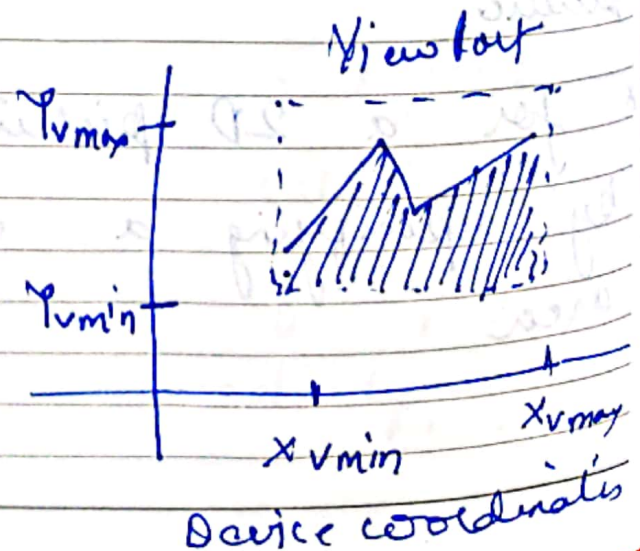 View Port
Yvmax
Yvmin
Xvmin
Xvmax
Device coordinates